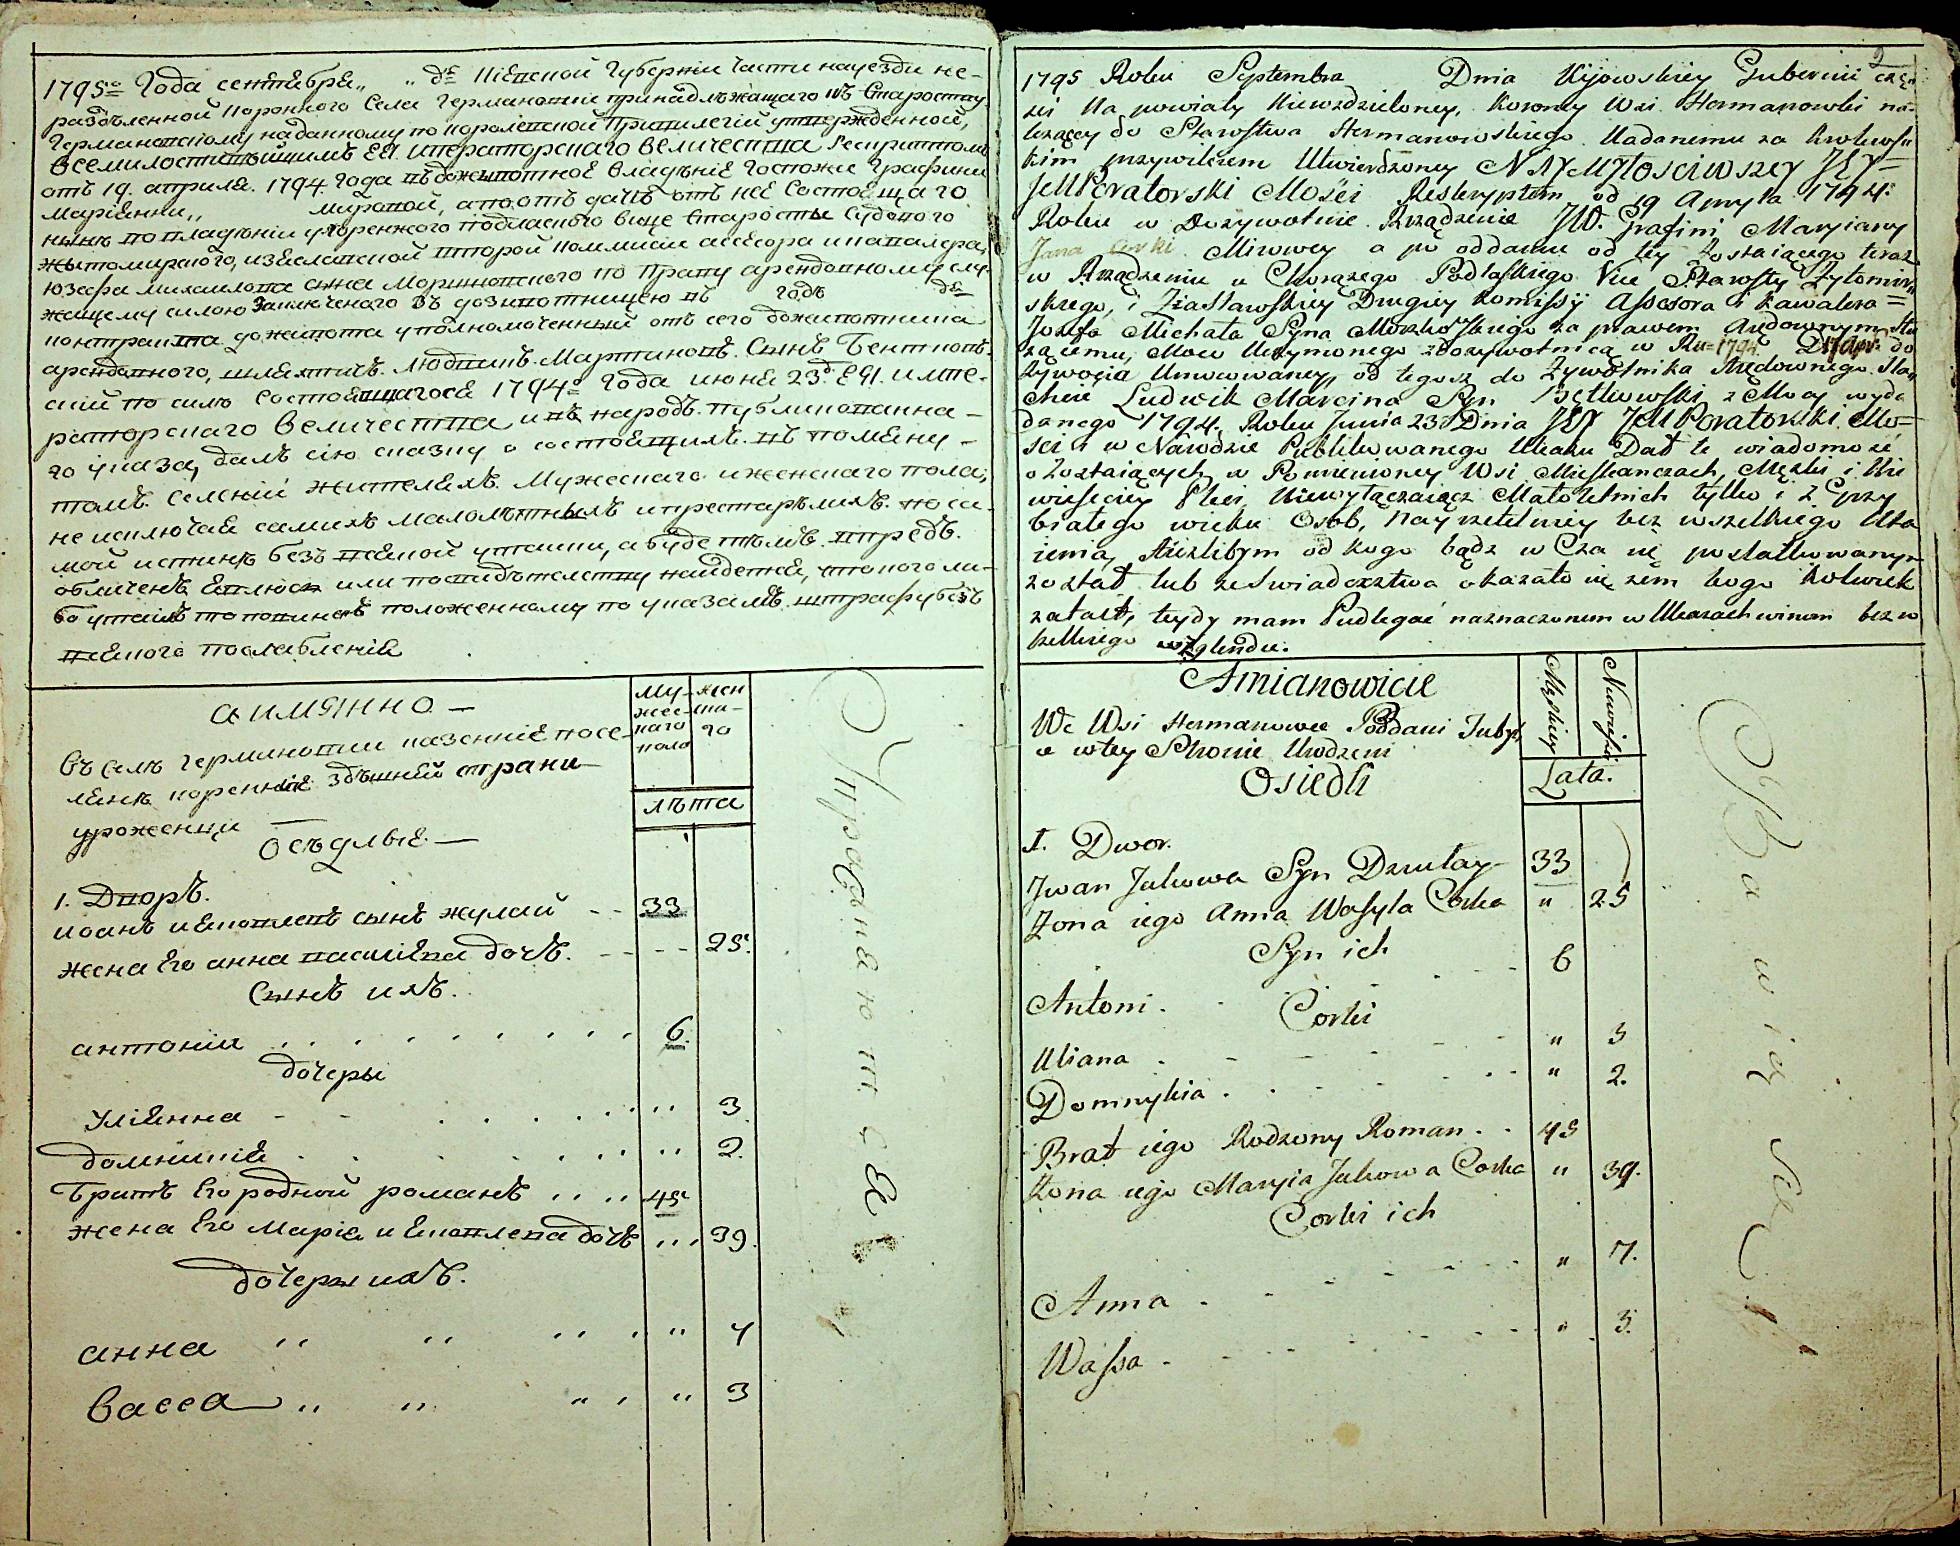 1795го Года сентебре,, ,, де Кіевской Губерніи части науезди не-
разделенной Коронного Села Германовки принадлежащаго къ Староству
Германовскому наданному по королевской Привилегіи утвержденной,
Всемилостивѣйшимъ ЕЯ Императорскаго Величества Рескриптомъ
отъ 19. априля. 1794. года въ доживотное Владѣніе Госпожи Графини
Маріянни,, Мировой, а по отъ дачѣ отъ неѣ Состоящаго
нынѣ во владѣніи у Хоренжого подласкаго вице Старосты Судового
жытомирского, изяславской второй Коммисіи асессора и кавалера,
Юзефа Михайлова сына Моршковского по Праву арендовному слу-
жащему силою Заключенаго въ доживотницею въ годѣ де
контракта доживота уполномоченный отъ сего доживотника
арендовного, шляхтичъ. Людвикъ. Мартиновъ. Сынъ Бентков-
скій по силѣ Состоявшагося 1794го года июня 23д. ЕЯ. импе-
раторскаго Величества и въ народъ. публикованна-
го указа, далъ сію сказку о состоящихъ. въ помену-
томъ. Селеніи жителяхъ. Мужескаго и женскаго пола,
не исключая самихъ малолѣтныхъ и престарѣлихъ. по са-
мой истинѣ безъ всякой утайки, а буде кѣмъ. впредъ.
обличенъ явлюся или по свидѣтелству найдется, что кого ли-
бо утаилъ то повиненъ положенному по указамъ. штрафу безъ
всякого послабленія
а имянно. —
въ селѣ германовки казенніе посе-
ляне коренніе здѣшней страни
уроженци
Осѣдлые. —
му-
жес-
каго
пола
жен
ска-
го
лѣта
1. Дворъ.
иоанъ иаковлевъ сынъ жулай - - 33
жена Его анна васильева дочъ. - - - - 25.
Сынъ ихъ.
антоніи . . . . . . . . 6.
дочеры
Уліянна - - . . . . . ,, 3
домникія . . . . . . . ,, 2.
Братъ Его родной романъ . . . . 45
жена Его Марія иаковлева дочъ . . . 39.
дочеры ихъ.
анна ,, ,, ,, . ,, 7
васса ,, ,, ,, , ,, 3
Управляющей
2
1795 Roku Septembra Dnia Kijowskiey Gubernii częś
ści Na powiaty Nierozdzieloney, koronney Wsi Hermanowki na-
leżącey do Starostwa Hermanowskiego. Nadanemu za krolews
kim przywileiem Utwierdzoney NAYMYŁOSCIWSZEY JEY=
JEMPeratorski Mości Reskryptem od 19 Apryla 1794:
Roku w Dożywotnie Rządzenie JW. Grafini Maryiany
Jana Corki Mirowey a po oddaniu od tey zostaiącego teraz
w Rządzeniu u Chorążego Podlaskiego Vice Starosty Żytomir
skiego, i Zasławskiey Drugiey Komissyi Assesora i Kawalera=
Jozefa Michała Syna Morzkowskiego za prawem Arędownym słu
żącemu, Mocą Uczynionego z Dożywotnicą w Ru=1794. D 17 Apr. do
żywocia Umocowaney, od tegoż do Żywotnika Arędownego Sla,
chcic Ludwik Marcina Syn Bętkowski z Mocy wyda
danego 1794. Roku Junia 23. Dnia JEY JEMPeratorski. Mo=
ści i w Narodzie Publikowanego Ukazu Dał te wiadomość
o Zostaiących w Pomienioney Wsi Mieszkańczach Męzki i Nie
wieściey Płci, Niewyłączaiąc Małoletnich tylko i Zgrzy
białego wieku Osob, Nayrzetelniey bez wszelkiego Uta
ienia, Ażeżlibym od kogo bądz w Cza się postatkowanym
został lub ze Swiadecztwa okazało się żem kogo kolwiek
zataił, tedy mam Podlegać naznaczonem w Ukazach winom bez w
szelkiego względu.
Amianowicie
We Wsi Hermanowce Poddani Tuby
e w tey Stronie Urodzeni
Osiedli
Męskiey
Niewieści
Lata.
I. Dwor.
Jwan Jakowa Syn Dzułay - 33
Żona iego Anna Wasyla Corka ,, 25
Syn ich
Antoni . . . . - - 6
Corki
Uliana . - - - - - ,, 3
Domnykia . . . . - - ,, 2.
Brat iego Rodzony Roman . . 45
Żona iego Maryia Jakowa Corka ,, 39.
Corki ich
Anna . - - - - - ,, 7.
Wassa . - - - - - ,, 3.